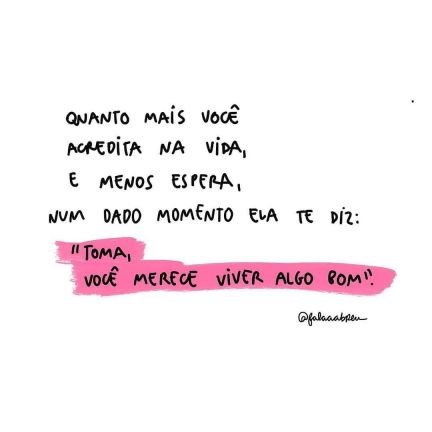 QUANTO MAIS VOCÊ
ACREDITA NA VIDA,
E MENOS ESPERA,
NUM DADO MOMENTO ELA TE DIZ:
"TOMA,
VOCÊ MERECE VIVER ALGO BOM".
@falaaabreu